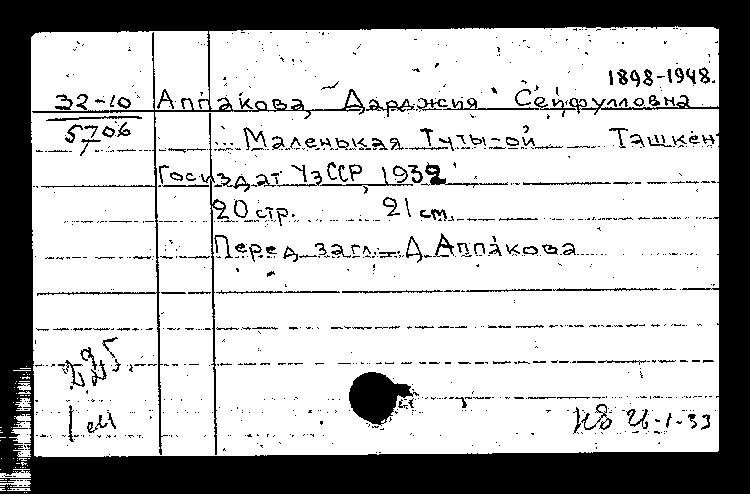 1898-1948.
32-10 Аппакова, Дарджия Сейфулловна
5706 Маленькая Туты-ой Ташкент
Госиздат УзССР, 1932
20 стр. 21 см.
Перед загл.—Д. Аппакова
225.
1 ем
26-1-33